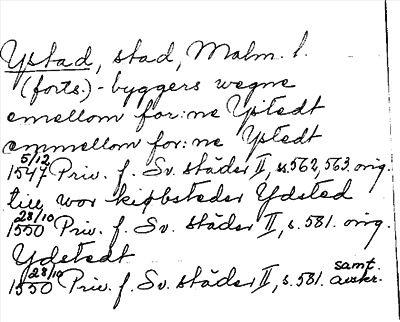 Ystad, stad, Malm. l.
(forts.) - byggers wegne
emellom for:ne Ystedt
emmellom for:ne Ystedt
5/12 1547 Priv. f. Sv. städer II, s. 562, 563. orig.
till wor kiøbsteder Ydsted
28/10 1550 Priv. f. Sv. städer II, s. 581. orig.
Ydstedt
28/10 1550 Priv. f. Sv. städer II, s. 581. samt. avskr.